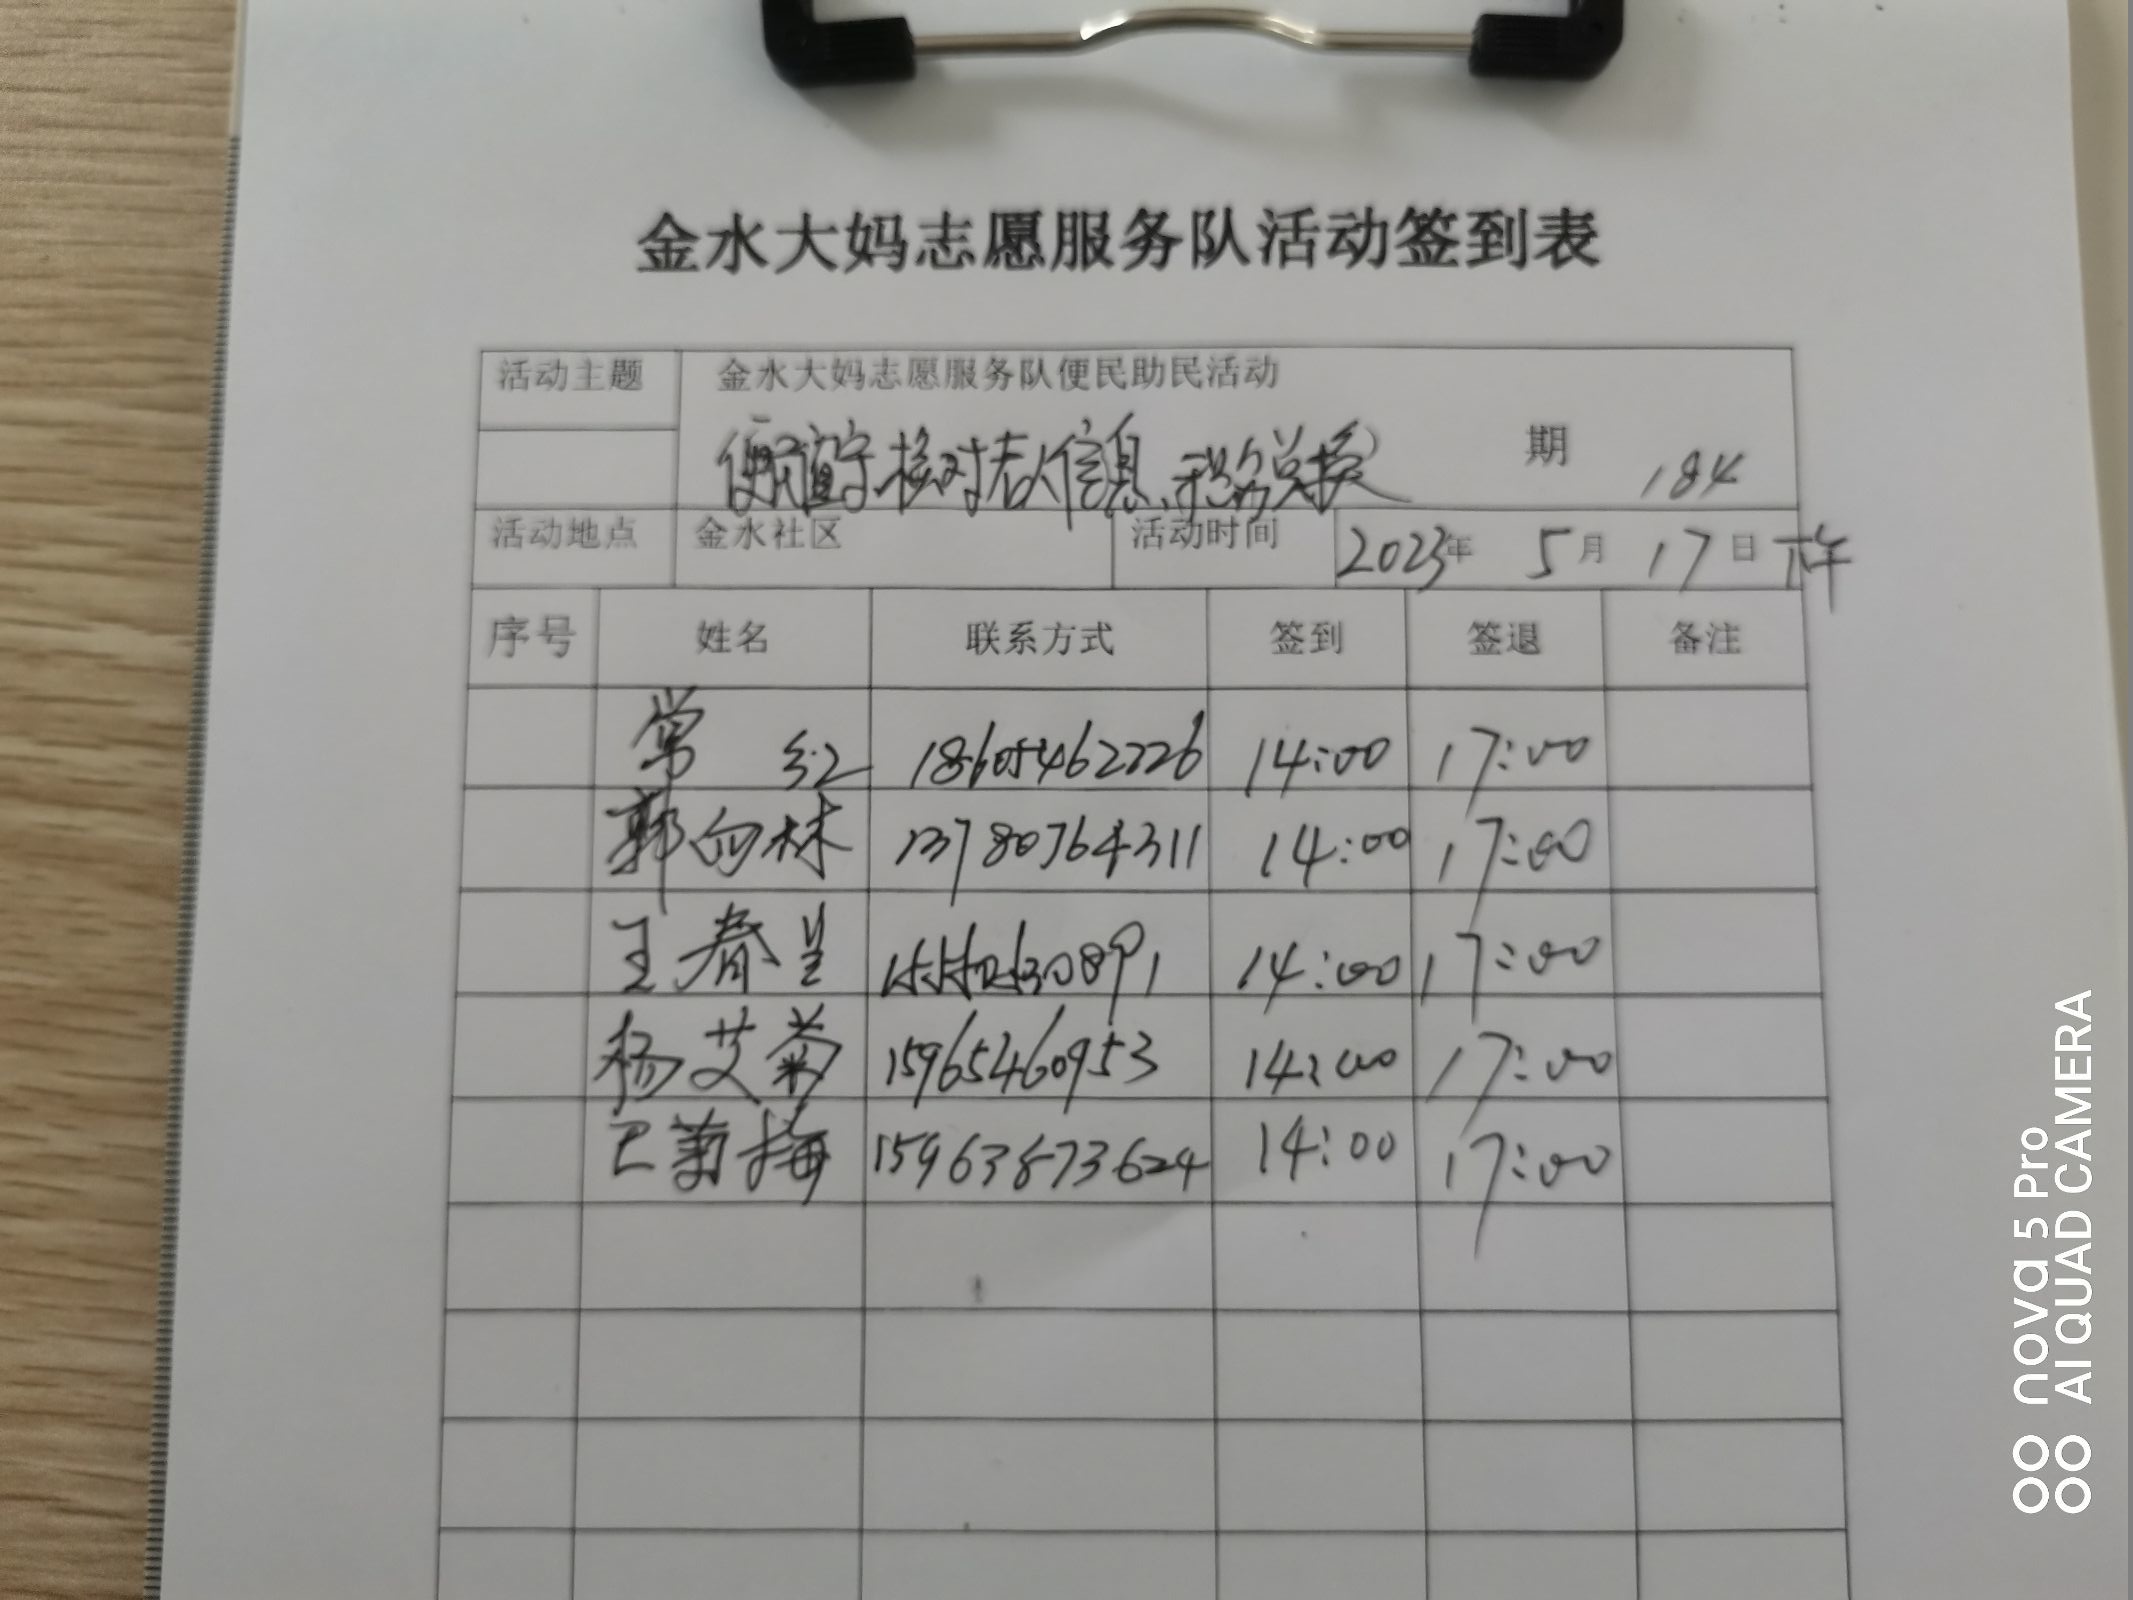 金水大妈志愿服务队活动签到表
活动主题 金水大妈志愿服务队便民助民活动
便民值守.核对老人信息、积分兑换 期 184
活动地点 金水社区 活动时间 2023年 5月 17日 下午
序号 姓名 联系方式 签到 签退 备注
常红 18605462226 14:00 17:00
郭向林 13780764311 14:00 17:00
王春兰 14:00 17:00
杨艾菊 15965460953 14:00 17:00
巴菊梅 15963873624 14:00 17:00
nova 5 Pro
AI QUAD CAMERA